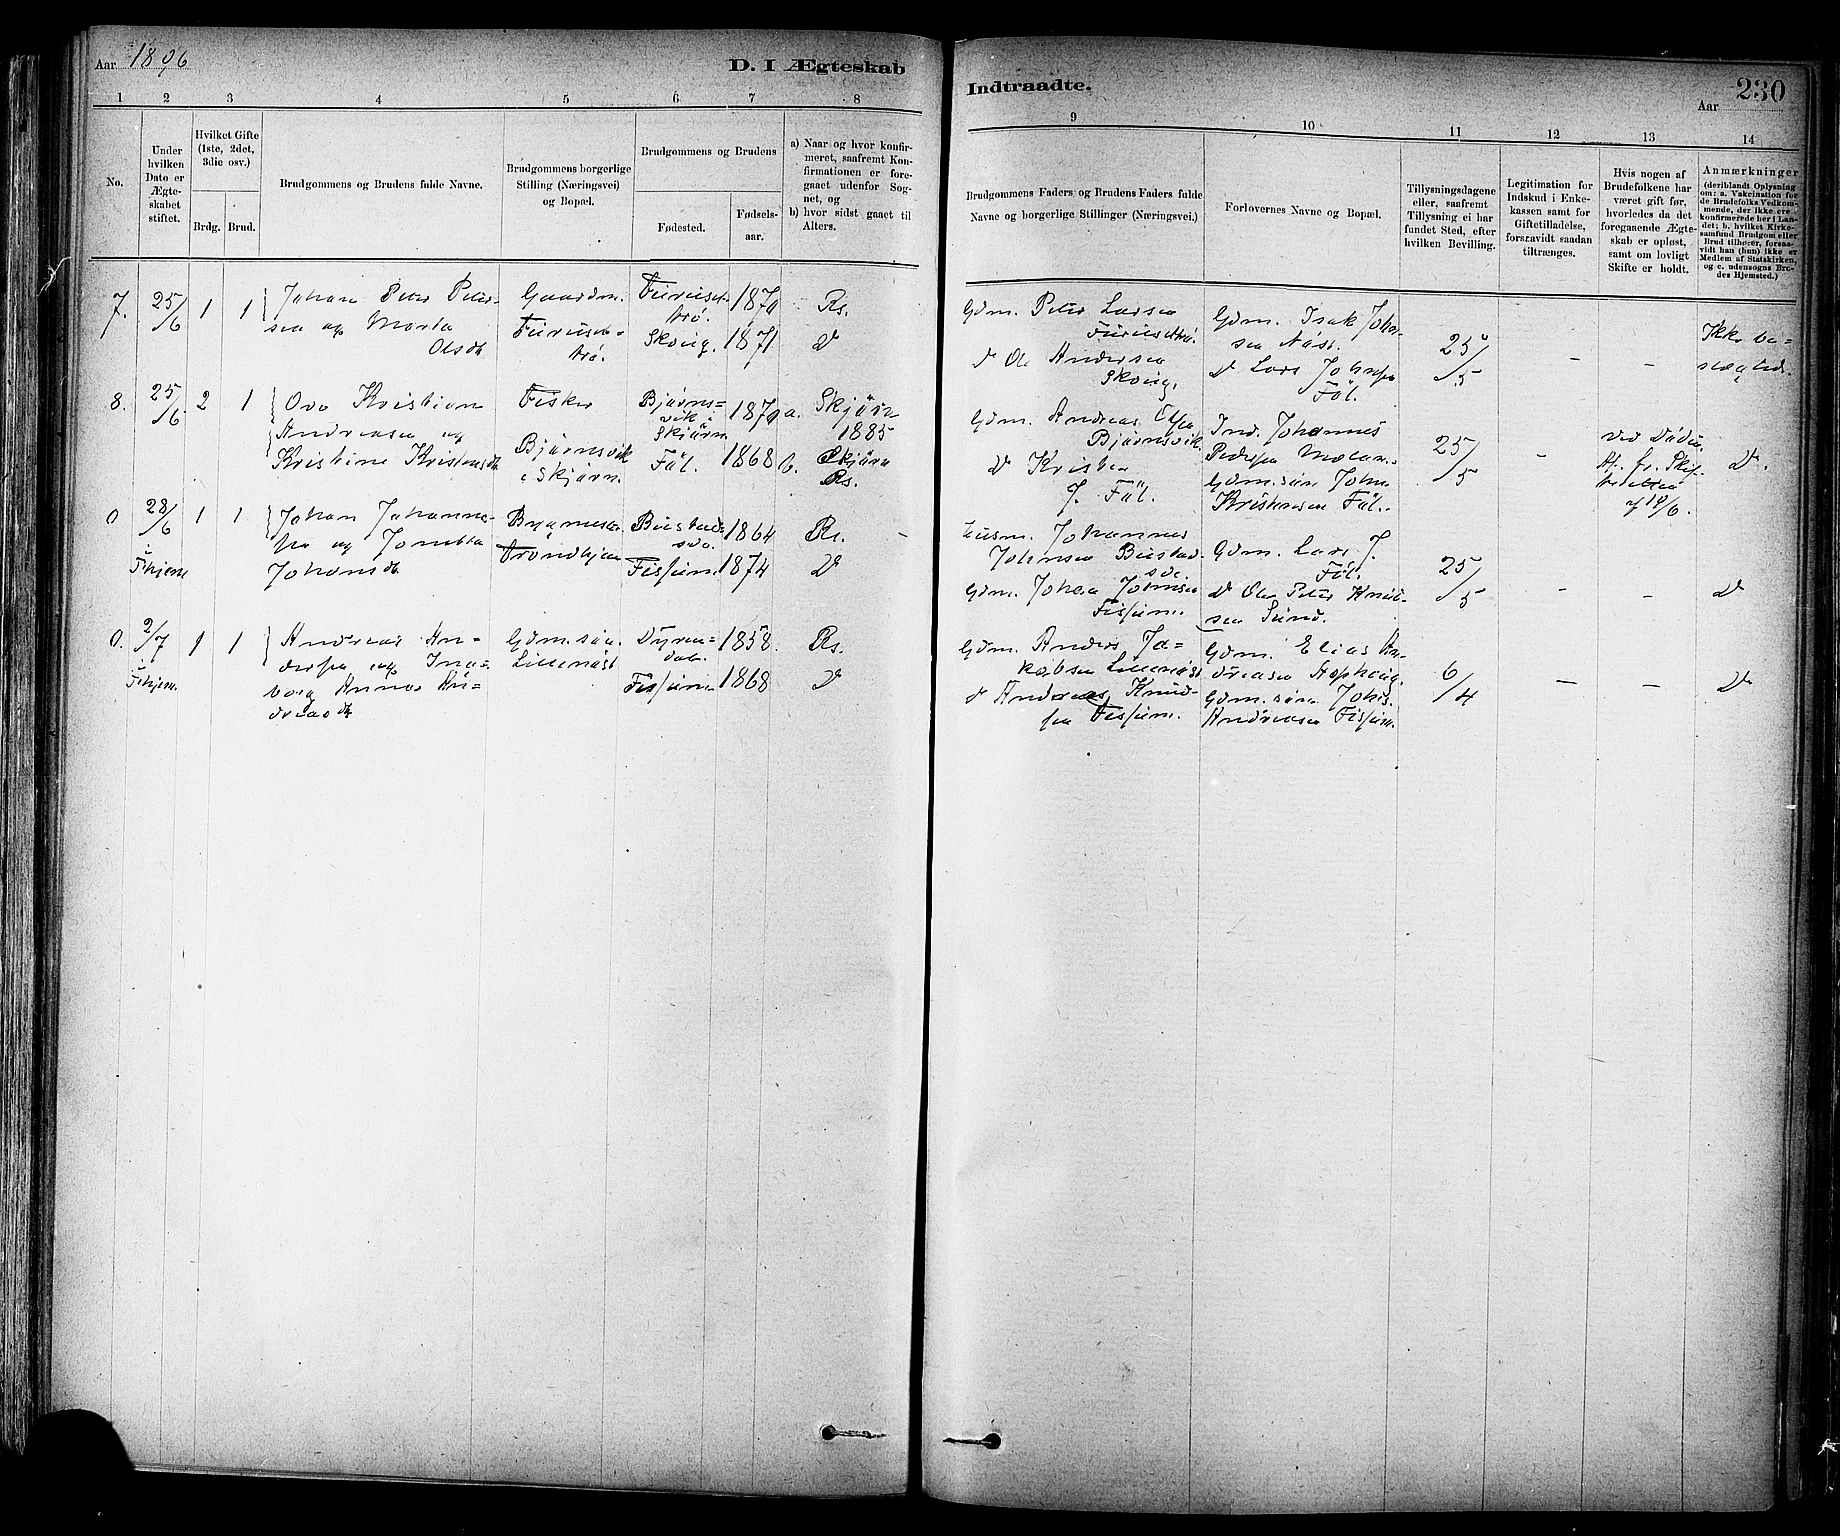 Aar 1896
D. I Ægteskab
1 2 3 4 5 6 7 8
No.
Under hvilken Dato er Ægteskabet stiftet.
Hvilket Gifte (1ste, 2det, 3die osv.)
Brdg. Brud.
Brudgommens og Brudens fulde Navne.
Brudgommens borgerlige Stilling (Næringsvei) og Bopæl.
Brudgommens og Brudens
Fødested.
Fødselsaar.
a) Naar og hvor konfirmeret, saafremt Konfirmationen er foregaaet udenfor Sognet, og
b) hvor sidst gaaet til Alters.
7. 25/6 1 1 Johan Peter Peter-
sen og Marta
Olsdt
Gaardm.
1870 Rs.
Skoug. 1871 d
8. 25/6 2 1 Ove Kristian
Andreasen og
Kristine Kristensdt
Fisker
Bjørnsvik
i Skjørn.
Bjørns-
vik i
Skjørn 1870 a. Skjørn
1885
Føl. 1868 b. Skjørn
Rs.
0 28/6 1 1 Johan Johanne-
sen og
Johansdt
Trondhjem
1864 Rs.
Fissum 1874 d
0. 2/7 1 1 Andreas An-
dersen og Inge-
borg Anna An-
dreasdt
Gdm.søn
Lillenäst
Dyren-
dal. 1858. Rs.
Fissum 1868 d
Indtraadte.
Aar 230
9 10 11 12 13 14
Brudgommens Faders og Brudens Faders fulde Navne og borgerlige Stillinger (Næringsvei.)
Forlovernes Navne og Bopæl.
Tillysningsdagene eller, saafremt Tillysning ei har fundet Sted, efter hvilken Bevilling.
Legitimation for Indskud i Enkekassen samt for Giftetilladelse, forsaavidt saadan tiltrænges.
Hvis nogen af Brudefolkene har været gift før, hvorledes da det foregaaende Ægteskab er opløst, samt om lovligt Skifte er holdt.
Anmærkninger
(deriblandt Oplysning om: a. Vakcination for de Brudefolks Vedkommende, der ikke ere konfirmerede her i Landet; b. hvilket Kirkesamfund Brudgom eller Brud tilhører, forsaavidt han (hun) ikke er Medlem af Statskirken, og c. udensogns Brudes Hjemsted.)
Gdm. Peter Larsen
d Ole Andersen
Skoug.
Gdm. Isak Johan-
sen Näst.
d Lars Johnsen
Føl.
25/5 – –
Ikke be-
slægted.
Gdm. Andreas Olsen
Bjørnsvik
d Kristen
J. Føl.
Ind. Johannes
Pedersen
Gdm.søn John
Kristensen Føl.
25/5 –
ved Döden
af 10/6.
d.
Husm. Johannes
Johnsen
Gdm. Johan Johnsen
Fissum.
Gdm. Lars J.
Føl.
d Ole Peter Knud-
sen Sund.
25/5 – – d
Gdm. Anders Ja-
kobsen Lillenäst
d Andreas Knud-
sen Fissum.
Gdm. Elias An-
dreasen Aaphoug.
Gdm.søn Johs.
Andreasen Fissum.
6/4 – – d